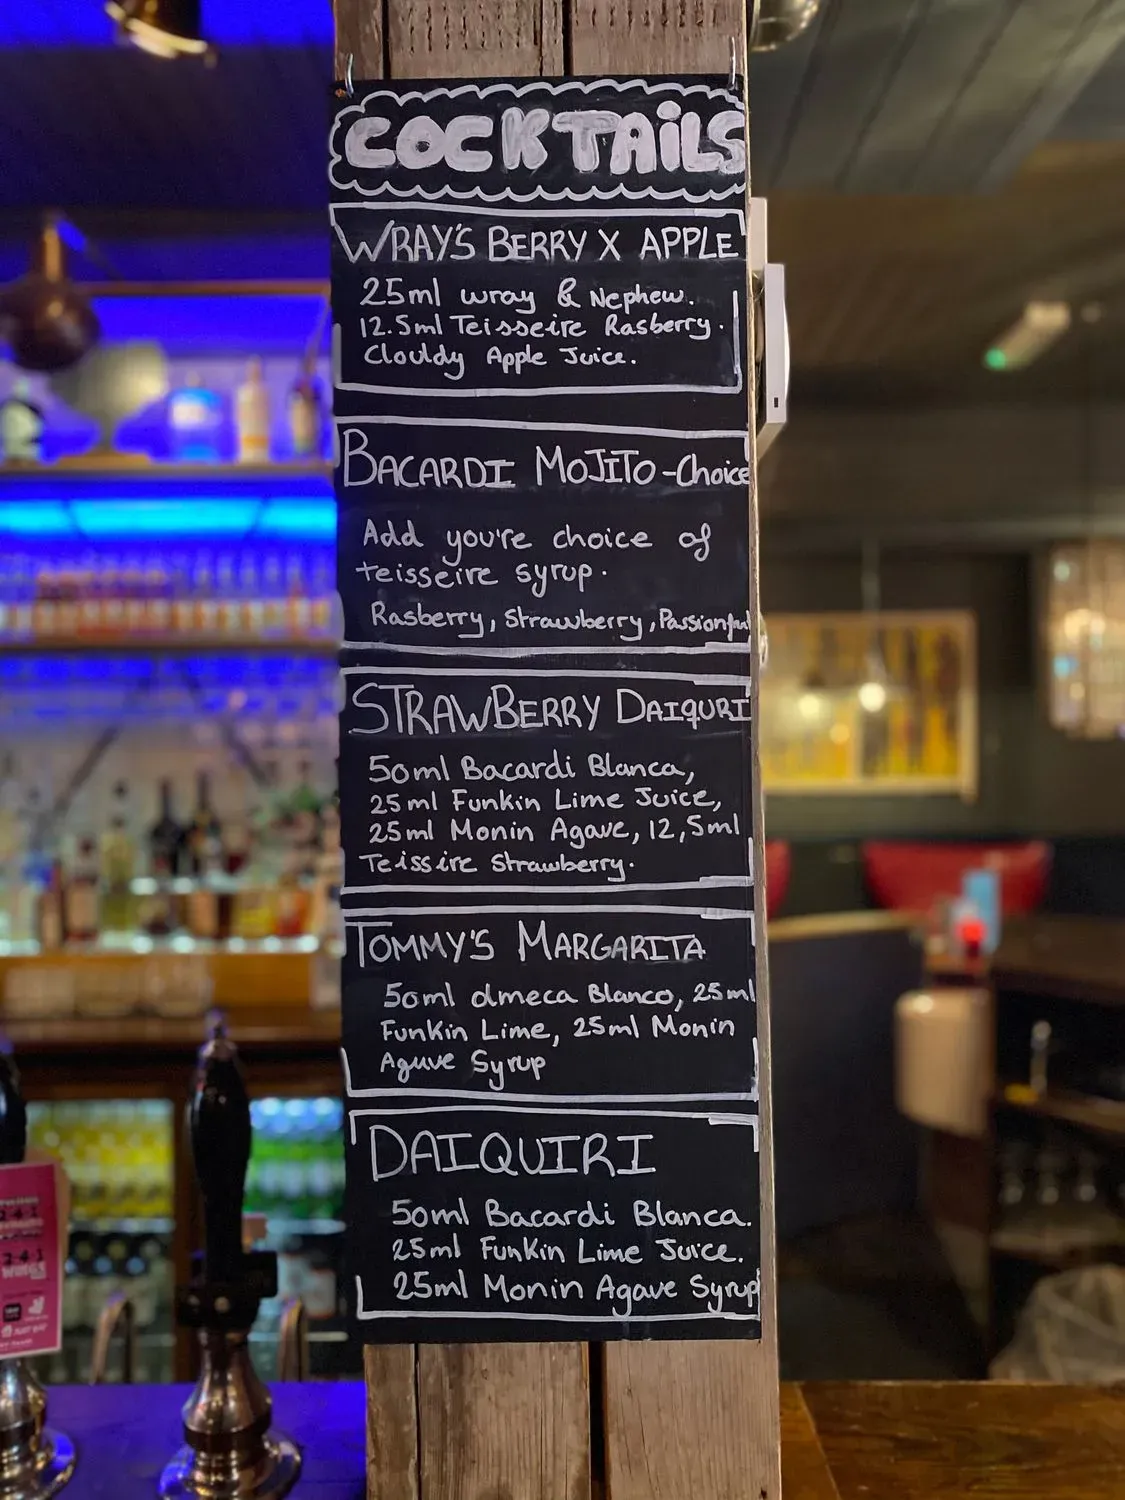 COCKTAiLS
WRAY'S BERRY X APPLE
25ml wray & Nephew.
12.5ml Teisseire Rasberry.
Clouldy Apple Juice.
BACARDI MOJITO-Choice
Add you're choice of
teisseire syrup.
Rasberry, Strawberry, Passionfrui
STRAWBERRY DAIQURI
50ml Bacardi Blanca,
25ml Funkin Lime Juice,
25ml Monin Agave, 12,5ml
Teissire Strawberry.
TOMMY'S MARGARITA
50ml olmeca Blanco, 25ml
Funkin Lime, 25ml Monin
Aguve Syrup
DAIQUIRI
50ml Bacardi Blanca.
25ml Funkin Lime Juice.
25ml Monin Agave Syrup
2-4-1
WINGS
JUST EAT